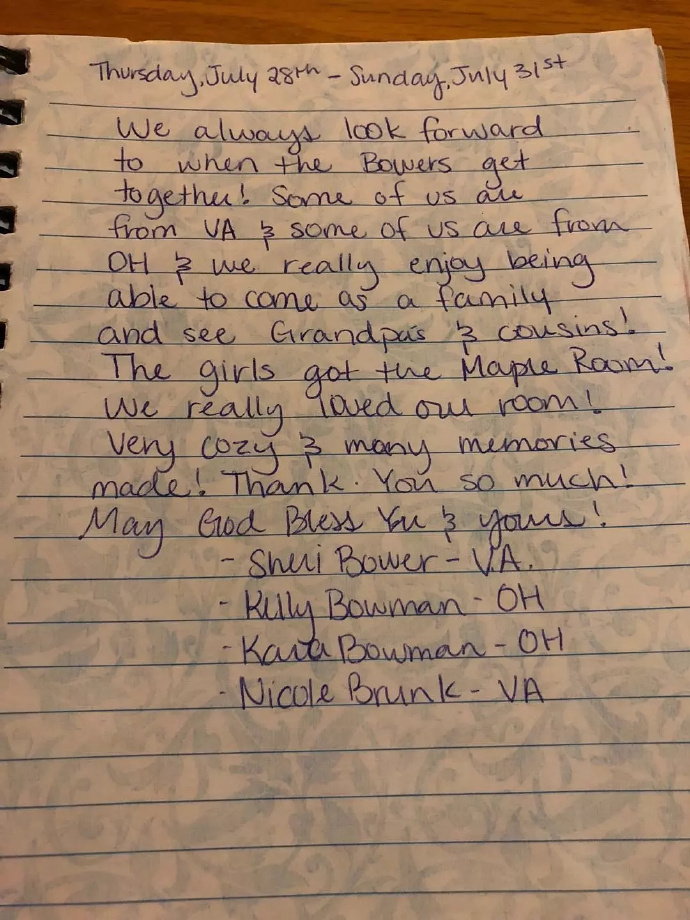 Thursday, July 28th - Sunday, July 31st
We always look forward
to when the Bowers get
together! Some of us are
from VA & some of us are from
OH & we really enjoy being
able to come as a family
and see Grandpa's & cousins!
The girls got the Maple Room!
We really loved our room!
Very cozy & many memories
made! Thank You so much!
May God Bless You & yours!
- Sheri Bower - VA.
- Kelly Bowman - OH
- Kara Bowman - OH
- Nicole Brunk - VA